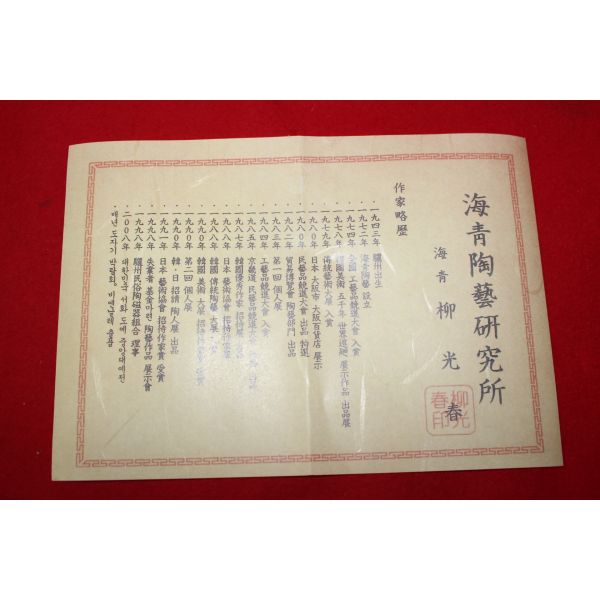 海靑陶藝硏究所
海靑 柳光春
柳光春印
作家略歷
・一九四三年 驪州出生
・一九七二年 海靑陶藝 設立
・一九七四年 全國 工藝品競進大會 入賞
・一九七八年 韓國美術 五千年 世界巡廻 展示作品 出品展
・一九七九年 傳統藝術大展 入賞
・一九八〇年 日本 大阪市 大阪百貨店 展示
・一九八〇年 民藝品競進大會 出品 特選
・一九八二年 貿易博覽會 陶藝部門 出品
・一九八三年 第一回 個人展
・一九八四年 工藝品競進大會 入賞
・一九八五年 京畿道 民藝品競進大會
・一九八七年 韓國優秀作家 招待
・一九八八年 日本 藝術協會 招待作家
・一九八八年 韓國 傳統陶藝 大展
・一九九〇年 韓國 美術 大展 招待
・一九九〇年 第二回 個人展
・一九九〇年 韓・日 招請 陶人展 出品
・一九九一年 日本 藝術協會 招待作家賞 受賞
・一九九八年 失業者 基金마련 陶藝作品 展示會
・一九九八年 驪州民俗陶磁器組合 理事
・二〇〇八年 대한민국 서화 도예 중앙대예전
・매년 도자기 박람회, 비엔날레 출품